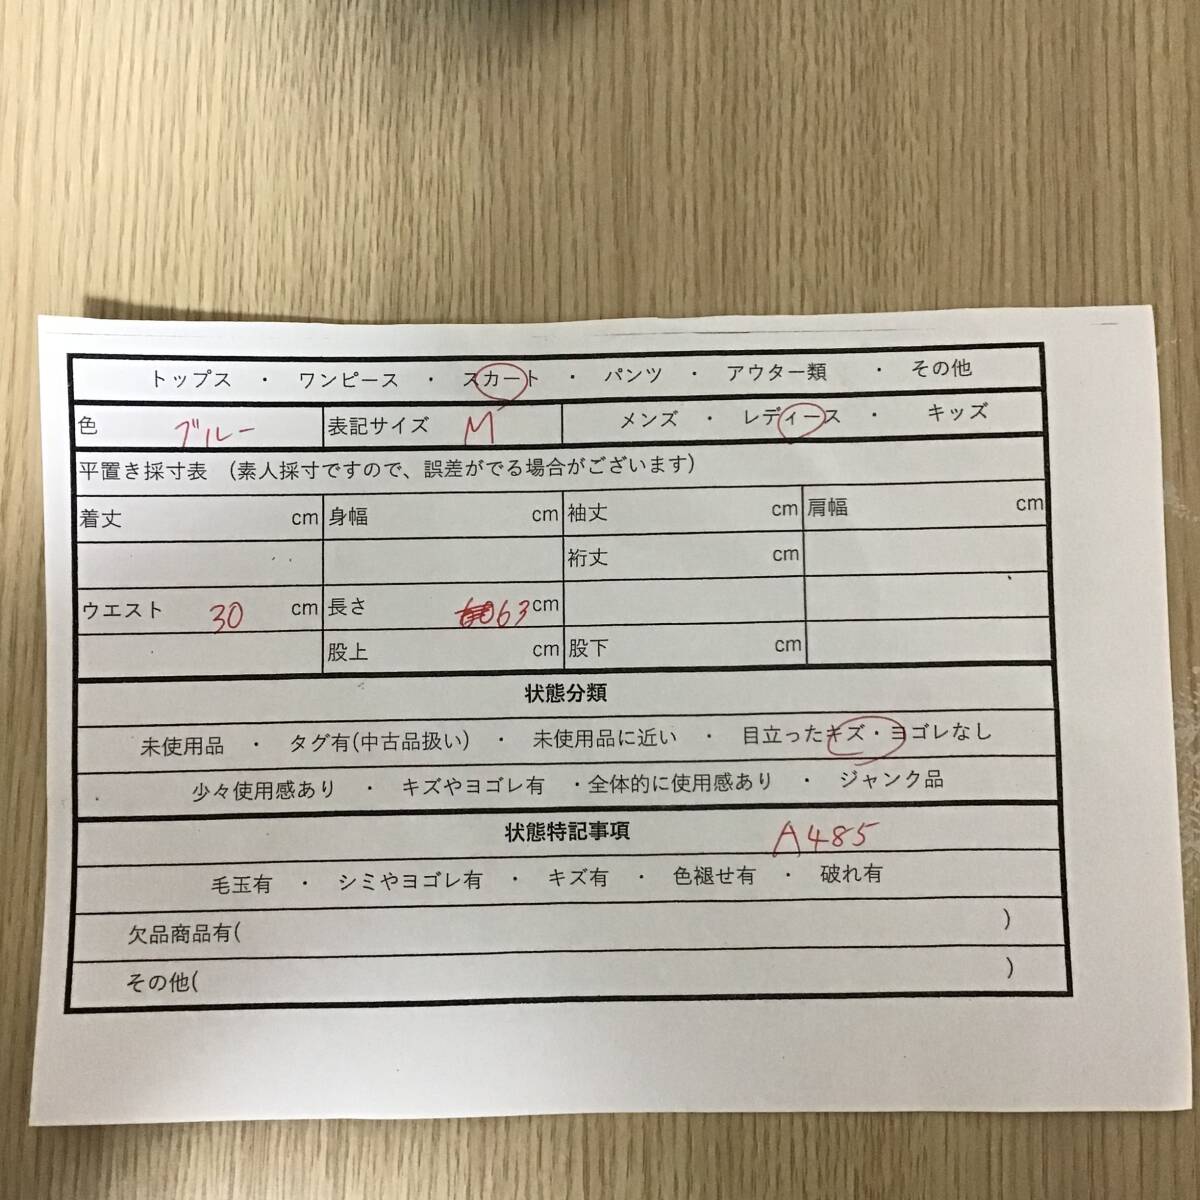 トップス ・ ワンピース ・ スカート ・ パンツ ・ アウター類 ・ その他
色 ブルー 表記サイズ M メンズ ・ レディース ・ キッズ
平置き採寸表 (素人採寸ですので、誤差がでる場合がございます)
着丈 cm 身幅 cm 袖丈 cm 肩幅 cm
裄丈 cm
ウエスト 30 cm 長さ 63 cm
股上 cm 股下 cm
状態分類
未使用品 ・ タグ有(中古品扱い) ・ 未使用品に近い ・ 目立ったキズ・ヨゴレなし
少々使用感あり ・ キズやヨゴレ有 ・全体的に使用感あり ・ ジャンク品
状態特記事項 A485
毛玉有 ・ シミやヨゴレ有 ・ キズ有 ・ 色褪せ有 ・ 破れ有
欠品商品有( )
その他( )